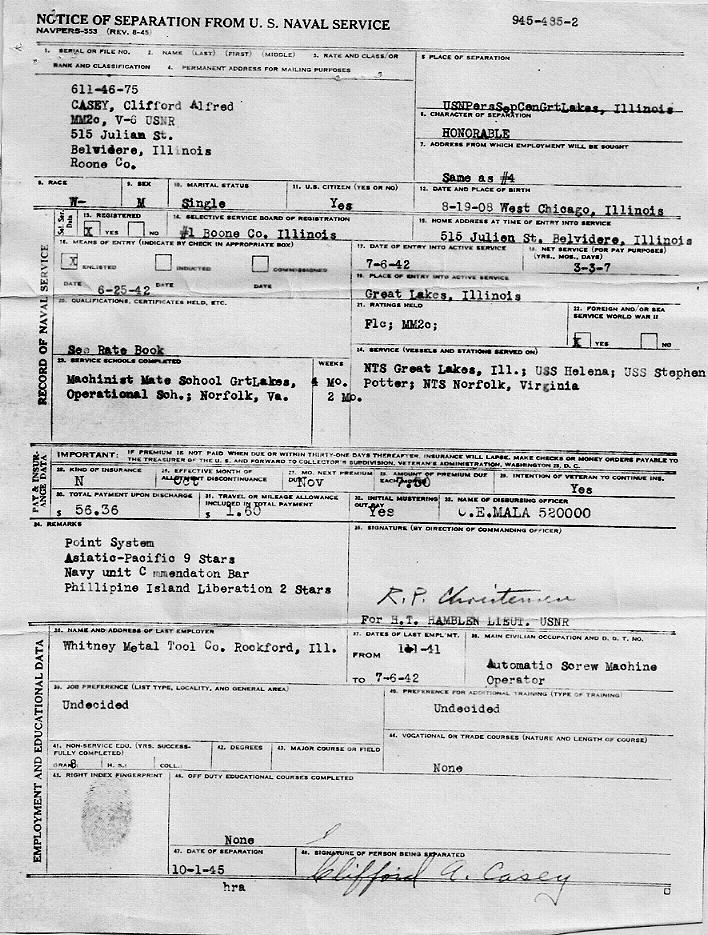 NOTICE OF SEPARATION FROM U. S. NAVAL SERVICE
945-485-2
NAVPERS-553 (REV. 8-45)
1. SERIAL OR FILE NO. 2. NAME (LAST) (FIRST) (MIDDLE) 3. RATE AND CLASS/OR
RANK AND CLASSIFICATION 4. PERMANENT ADDRESS FOR MAILING PURPOSES
611-46-75
CASEY, Clifford Alfred
MM2c, V-6 USNR
515 Julian St.
Belvidere, Illinois
Boone Co.
5 PLACE OF SEPARATION
USNPersSepCenGrtLakes, Illinois
6. CHARACTER OF SEPARATION
HONORABLE
7. ADDRESS FROM WHICH EMPLOYMENT WILL BE SOUGHT
Same as #4
8. RACE 9. SEX 10. MARITAL STATUS 11. U.S. CITIZEN (YES OR NO) 12. DATE AND PLACE OF BIRTH
W- M Single Yes 8-19-08 West Chicago, Illinois
RECORD OF NAVAL SERVICE
Sel. Ser. Data
13. REGISTERED 14. SELECTIVE SERVICE BOARD OF REGISTRATION 15. HOME ADDRESS AT TIME OF ENTRY INTO SERVICE
X YES NO #1 Boone Co. Illinois 515 Julien St. Belvidere, Illinois
16. MEANS OF ENTRY (INDICATE BY CHECK IN APPROPRIATE BOX)
X ENLISTED INDUCTED COMMISSIONED
DATE 6-25-42 DATE DATE
17. DATE OF ENTRY INTO ACTIVE SERVICE
7-6-42
18. NET SERVICE (FOR PAY PURPOSES)
(YRS., MOS., DAYS)
3-3-7
19. PLACE OF ENTRY INTO ACTIVE SERVICE
Great Lakes, Illinois
20. QUALIFICATIONS, CERTIFICATES HELD, ETC.
See Rate Book
21. RATINGS HELD
F1c; MM2c;
22. FOREIGN AND/OR SEA
SERVICE WORLD WAR II
X YES NO
23. SERVICE SCHOOLS COMPLETED WEEKS
Machinist Mate School GrtLakes, 4 Mo.
Operational Sch.; Norfolk, Va. 2 Mo.
24. SERVICE (VESSELS AND STATIONS SERVED ON)
NTS Great Lakes, Ill.; USS Helena; USS Stephen
Potter; NTS Norfolk, Virginia
PAY & INSURANCE DATA
IMPORTANT: IF PREMIUM IS NOT PAID WHEN DUE OR WITHIN THIRTY-ONE DAYS THEREAFTER, INSURANCE WILL LAPSE. MAKE CHECKS OR MONEY ORDERS PAYABLE TO
THE TREASURER OF THE U. S. AND FORWARD TO COLLECTOR'S SUBDIVISION, VETERAN'S ADMINISTRATION, WASHINGTON 25, D. C.
25. KIND OF INSURANCE
N
26. EFFECTIVE MONTH OF
ALLOTMENT DISCONTINUANCE
27. MO. NEXT PREMIUM
Nov
28. AMOUNT OF PREMIUM DUE
EACH MONTH
29. INTENTION OF VETERAN TO CONTINUE INS.
Yes
30. TOTAL PAYMENT UPON DISCHARGE
$ 56.36
31. TRAVEL OR MILEAGE ALLOWANCE
INCLUDED IN TOTAL PAYMENT
$
32. INITIAL MUSTERING
OUT PAY
Yes
33. NAME OF DISBURSING OFFICER
C.E.MALA 520000
34. REMARKS
Point System
Asiatic-Pacific 9 Stars
Navy unit C mmendaton Bar
Phillipine Island Liberation 2 Stars
35. SIGNATURE (BY DIRECTION OF COMMANDING OFFICER)
R. P. Christensen
For H.T. HAMBLEN LIEUT. USNR
EMPLOYMENT AND EDUCATIONAL DATA
36. NAME AND ADDRESS OF LAST EMPLOYER
Whitney Metal Tool Co. Rockford, Ill.
37. DATES OF LAST EMPL'MT.
FROM
TO 7-6-42
38. MAIN CIVILIAN OCCUPATION AND D. O. T. NO.
Automatic Screw Machine
Operator
39. JOB PREFERENCE (LIST TYPE, LOCALITY, AND GENERAL AREA)
Undecided
40. PREFERENCE FOR ADDITIONAL TRAINING (TYPE OF TRAINING)
Undecided
41. NON-SERVICE EDU. (YRS. SUCCESS-
FULLY COMPLETED)
GRAM. 8 H. S.: COLL.
42. DEGREES
43. MAJOR COURSE OR FIELD
44. VOCATIONAL OR TRADE COURSES (NATURE AND LENGTH OF COURSE)
None
45. RIGHT INDEX FINGERPRINT
46. OFF DUTY EDUCATIONAL COURSES COMPLETED
None
47. DATE OF SEPARATION
10-1-45
48. SIGNATURE OF PERSON BEING SEPARATED
Clifford A. Casey
hra